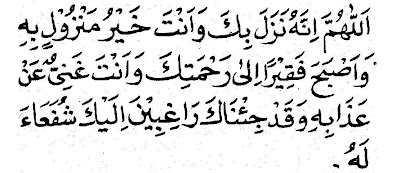 اَللّٰهُمَّ اِنَّهُ نَزَلَ بِكَ وَاَنْتَ خَيْرُ مَنْزُوْلٍ بِهِ
وَاَصْبَحَ فَقِيْرًا اِلىٰ رَحْمَتِكَ وَاَنْتَ غَنِيٌّ عَنْ
عَذَابِهِ وَقَدْ جِئْنَاكَ رَاغِبِيْنَ اِلَيْكَ شُفَعَاءَ
لَهُ.